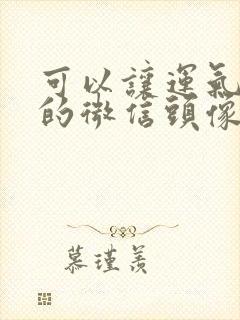 可以讓運氣
的微信頭像
慕瑾羨